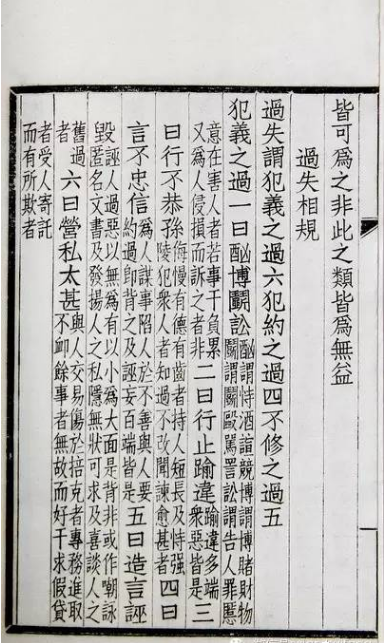 皆可爲之非此之類皆爲無益
過失相規
過失謂犯義之過六犯約之過四不修之過五
犯義之過一曰酗博鬭訟酗謂恃酒諠競博謂博賭財物鬭謂鬭毆罵詈訟謂告人罪慝
意在害人者若事干負累又爲人侵損而訴之者非二曰行止踰違踰違多端衆惡皆是三
曰行不恭孫侮慢有德有齒者持人短長及恃强陵犯衆人者知過不改聞諫愈甚者四曰
言不忠信爲人謀事陷人於不善與人要約過卽背之及誣妄百端皆是五曰造言誣
毀誣人過惡以無爲有以小爲大面是背非或作嘲詠匿名文書及發揚人之私隱無狀可求及喜談人之
舊過者六曰營私太甚與人交易傷於掊克者專務進取不卹餘事者無故而好干求假貸
者受人寄託而有所欺者